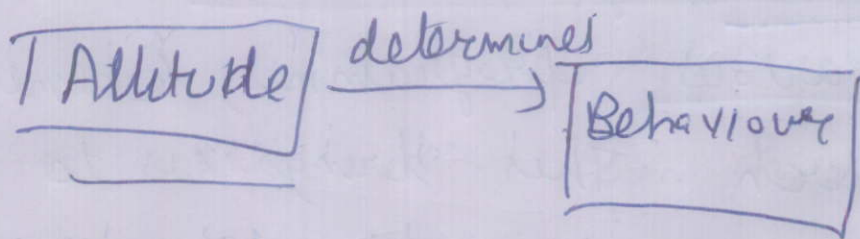 Attitude
determines
Behaviour